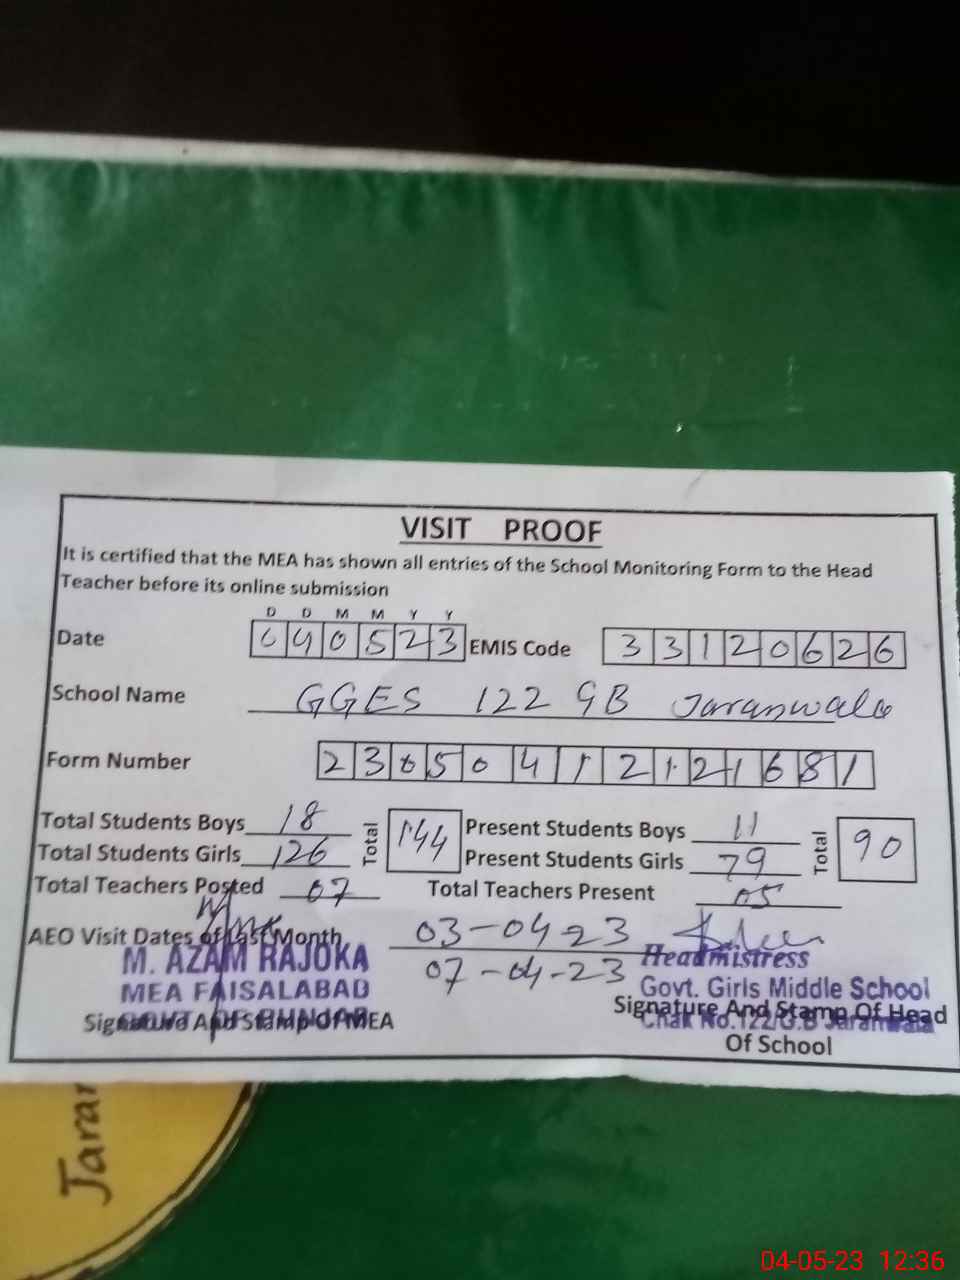 VISIT PROOF
It is certified that the MEA has shown all entries of the School Monitoring Form to the Head
Teacher before its online submission
D D M M Y Y
Date 040523 EMIS Code 33120626
School Name GGES 122 GB Jaranwala
Form Number 23050412121681
Total Students Boys 18 Total 144 Present Students Boys 11 Total 90
Total Students Girls 126 Present Students Girls 79
Total Teachers Posted 07 Total Teachers Present 05
AEO Visit Dates of Last Month 03-04-23
07-04-23
M. AZAM RAJOKA
MEA FAISALABAD
GOVT. OF PUNJAB
Signature And Stamp Of MEA
Headmistress
Govt. Girls Middle School
Chak No.122/G.B Jaranwala
Signature And Stamp Of Head
Of School
Jaran
04-05-23 12:36